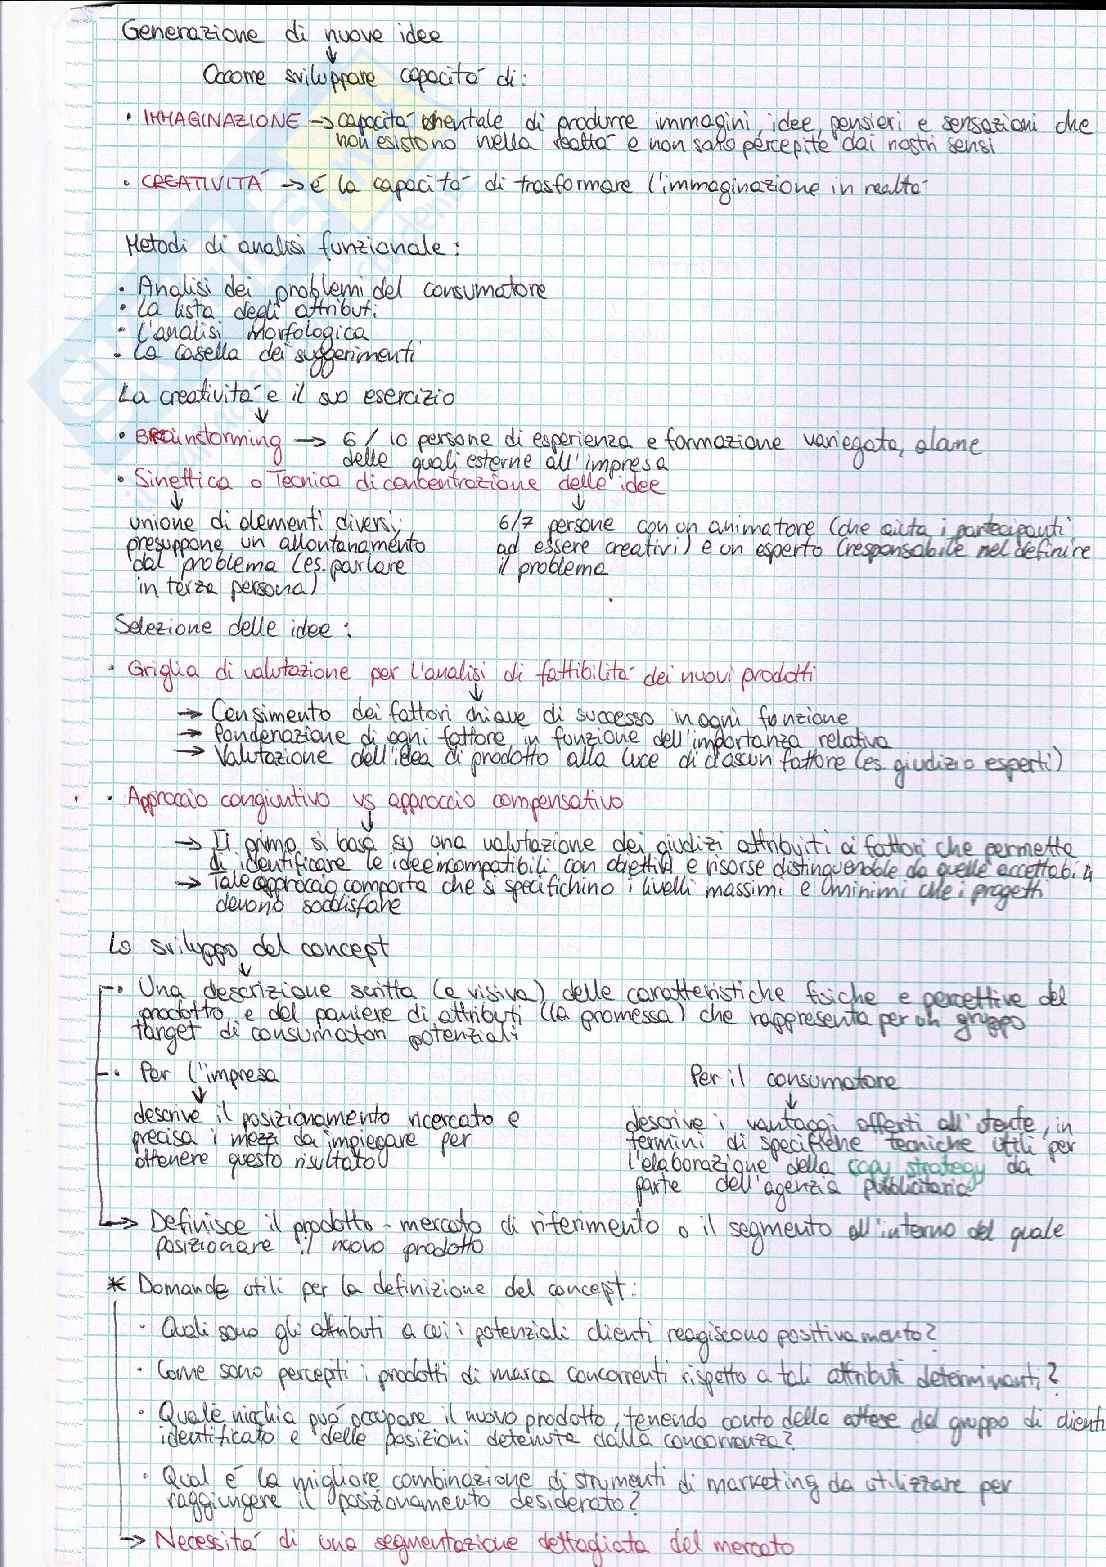 Generazione di nuove idee
↓
Occorre sviluppare capacità di:
• IMMAGINAZIONE → capacità mentale di produrre immagini, idee, pensieri e sensazioni che
non esistono nella realtà e non sono percepite dai nostri sensi
• CREATIVITÀ → è la capacità di trasformare l'immaginazione in realtà
Metodi di analisi funzionale:
• Analisi dei problemi del consumatore
• La lista degli attributi
• L'analisi morfologica
• La casella dei suggerimenti
La creatività e il suo esercizio
↓
• Brainstorming → 6/10 persone di esperienza e formazione variegata, alcune
delle quali esterne all'impresa
• Sinettica o Tecnica di concentrazione delle idee
↓ ↓
unione di elementi diversi,
presuppone un allontanamento
dal problema (es. parlare
in terza persona)
6/7 persone con un animatore (che aiuta i partecipanti
ad essere creativi) e un esperto (responsabile nel definire
il problema
Selezione delle idee:
• Griglia di valutazione per l'analisi di fattibilità dei nuovi prodotti
↓
→ Censimento dei fattori chiave di successo in ogni funzione
→ Ponderazione di ogni fattore in funzione dell'importanza relativa
→ Valutazione dell'idea di prodotto alla luce di ciascun fattore (es. giudizio esperti)
• Approccio congiuntivo vs approccio compensativo
↓
→ Il primo si basa su una valutazione dei giudizi attribuiti ai fattori che permette
di identificare le idee incompatibili con obiettivi e risorse distinguendole da quelle accettabili
→ Tale approccio comporta che si specifichino i livelli massimi e minimi che i progetti
devono soddisfare
Lo sviluppo del concept
↓
• Una descrizione scritta (e visiva) delle caratteristiche fisiche e percettive del
prodotto e del paniere di attributi (la promessa) che rappresenta per un gruppo
target di consumatori potenziali
• Per l'impresa
↓
descrive il posizionamento ricercato e
precisa i mezzi da impiegare per
ottenere questo risultato
Per il consumatore
↓
descrive i vantaggi offerti all'utente, in
termini di specifiche tecniche utili per
l'elaborazione della copy strategy da
parte dell'agenzia pubblicitaria
→ Definisce il prodotto - mercato di riferimento o il segmento all'interno del quale
posizionare il nuovo prodotto
* Domande utili per la definizione del concept:
• Quali sono gli attributi a cui i potenziali clienti reagiscono positivamente?
• Come sono percepiti i prodotti di marca concorrenti rispetto a tali attributi determinanti?
• Quale nicchia può occupare il nuovo prodotto, tenendo conto delle attese del gruppo di clienti
identificato e delle posizioni detenute dalla concorrenza?
• Qual è la migliore combinazione di strumenti di marketing da utilizzare per
raggiungere il posizionamento desiderato?
→ Necessità di una segmentazione dettagliata del mercato